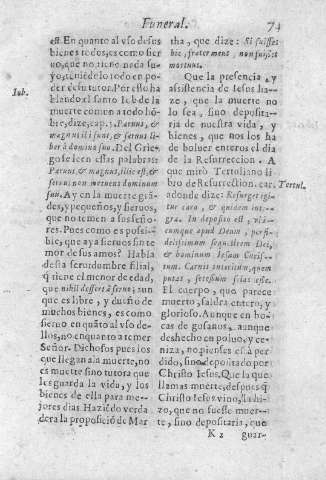 Funeral.
74
est. En quanto al vso desus
bienes todos, es como sier
uo, que no tiene nada su-
yo, teniēdolo todo en po-
der de su tutor. Por esto ha
Iob.
blando el santo Iob de la
muerte como a todo hō-
bre, dize, cap. 3. Paruus, &
magnus ibi sunt, & seruus li-
ber à domino suo. Del Grie-
go se leen estas palabras:
Paruus, & magnus, illic est, &
seruus non metuens dominum
suum. Ay en la muerte grā-
des, y pequeños, y sieruos,
que no temen a sus seño-
res. Pues como es possi-
ble, que aya sieruos sin te
mor de sus amos? Habla
desta seruidumbre filial,
q̄ tiene el menor de edad,
que nihil differt à seruo; aun
que es libre, y dueño de
muchos bienes, es como
sieruo en quāto al vso de-
llos, no en quanto a temer
Señor. Dichosos pues los
que llegan a la muerte, no
es muerte sino tutora que
les guarda la vida, y los
bienes de ella para me-
jores dias Haziēdo verda
dera la proposiciō de Mar
tha, que dize: Si fuisses
hic, frater meus, non fuisset
mortuus.
Que la presencia, y
assistencia de Iesus ha-
ze, que la muerte no
lo sea, sino deposita-
ria de nuestra vida, y
bienes, que nos los ha
de boluer enteros el dia
de la Resurreccion. A
que mirò Tertoliano li
bro de Resurrection. car.
Tertul.
adonde dize: Resurget igi-
tur caro, & quidem inte-
gra. In deposito est, vbi-
cumque apud Deum, per fi-
delissimum sequestrem Dei,
& hominum Iesum Chris-
tum. Carnis interitum, quem
putas, secessum scias esse.
El cuerpo, que parece
muerto, saldra entero, y
glorioso. Aunque en bo-
cas de gusanos, aunque
deshecho en poluo, y ce-
niza, no pienses està per
dido, sino depositado por
Christo Iesus. Que la que
llamas muerte, despues q̄
Christo Iesus vino, la hi-
zo, que no fuesse muer-
te, sino depositaria, que
K 2 guar-